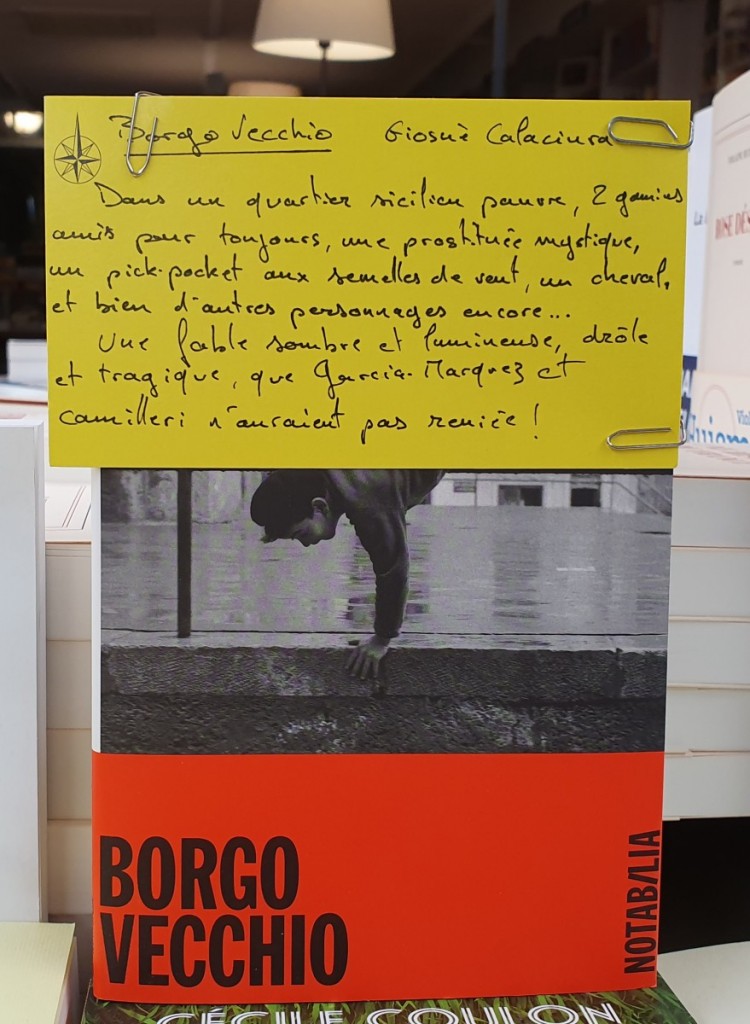 Borgo Vecchio Giosuè Calaciura
Dans un quartier sicilien pauvre, 2 gamins
amis pour toujours, une prostituée mystique,
un pick-pocket aux semelles de vent, un cheval,
et bien d'autres personnages encore...
Une fable sombre et lumineuse, drôle
et tragique, que Garcia-Marquez et
Camilleri n'auraient pas reniée !
BORGO
VECCHIO
NOTAB/LIA
CÉCILE COULON